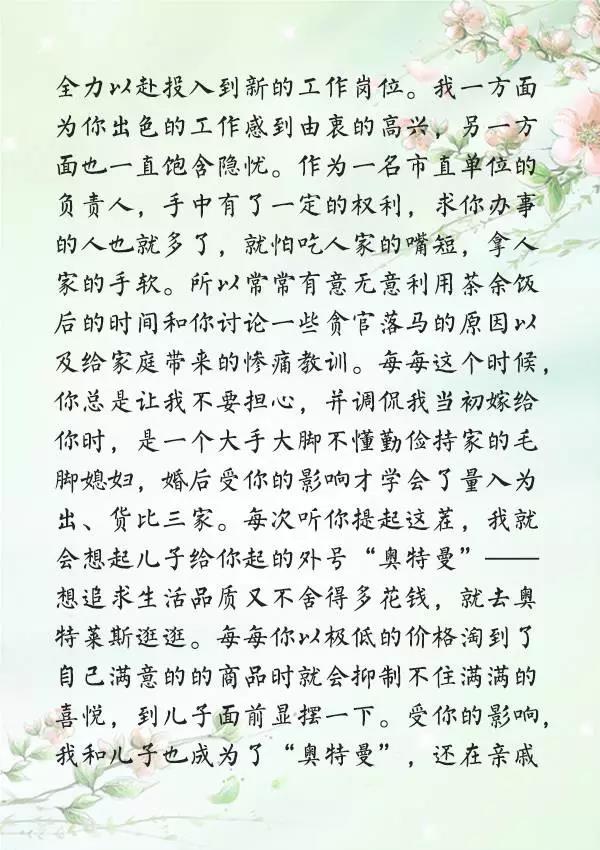 全力以赴投入到新的工作岗位。我一方面
为你出色的工作感到由衷的高兴，另一方
面也一直饱含隐忧。作为一名市直单位的
负责人，手中有了一定的权利，求你办事
的人也就多了，就怕吃人家的嘴短，拿人
家的手软。所以常常有意无意利用茶余饭
后的时间和你讨论一些贪官落马的原因以
及给家庭带来的惨痛教训。每每这个时候，
你总是让我不要担心，并调侃我当初嫁给
你时，是一个大手大脚不懂勤俭持家的毛
脚媳妇，婚后受你的影响才学会了量入为
出、货比三家。每次听你提起这茬，我就
会想起儿子给你起的外号“奥特曼”——
想追求生活品质又不舍得多花钱，就去奥
特莱斯逛逛。每每你以极低的价格淘到了
自己满意的的商品时就会抑制不住满满的
喜悦，到儿子面前显摆一下。受你的影响，
我和儿子也成为了“奥特曼”，还在亲戚